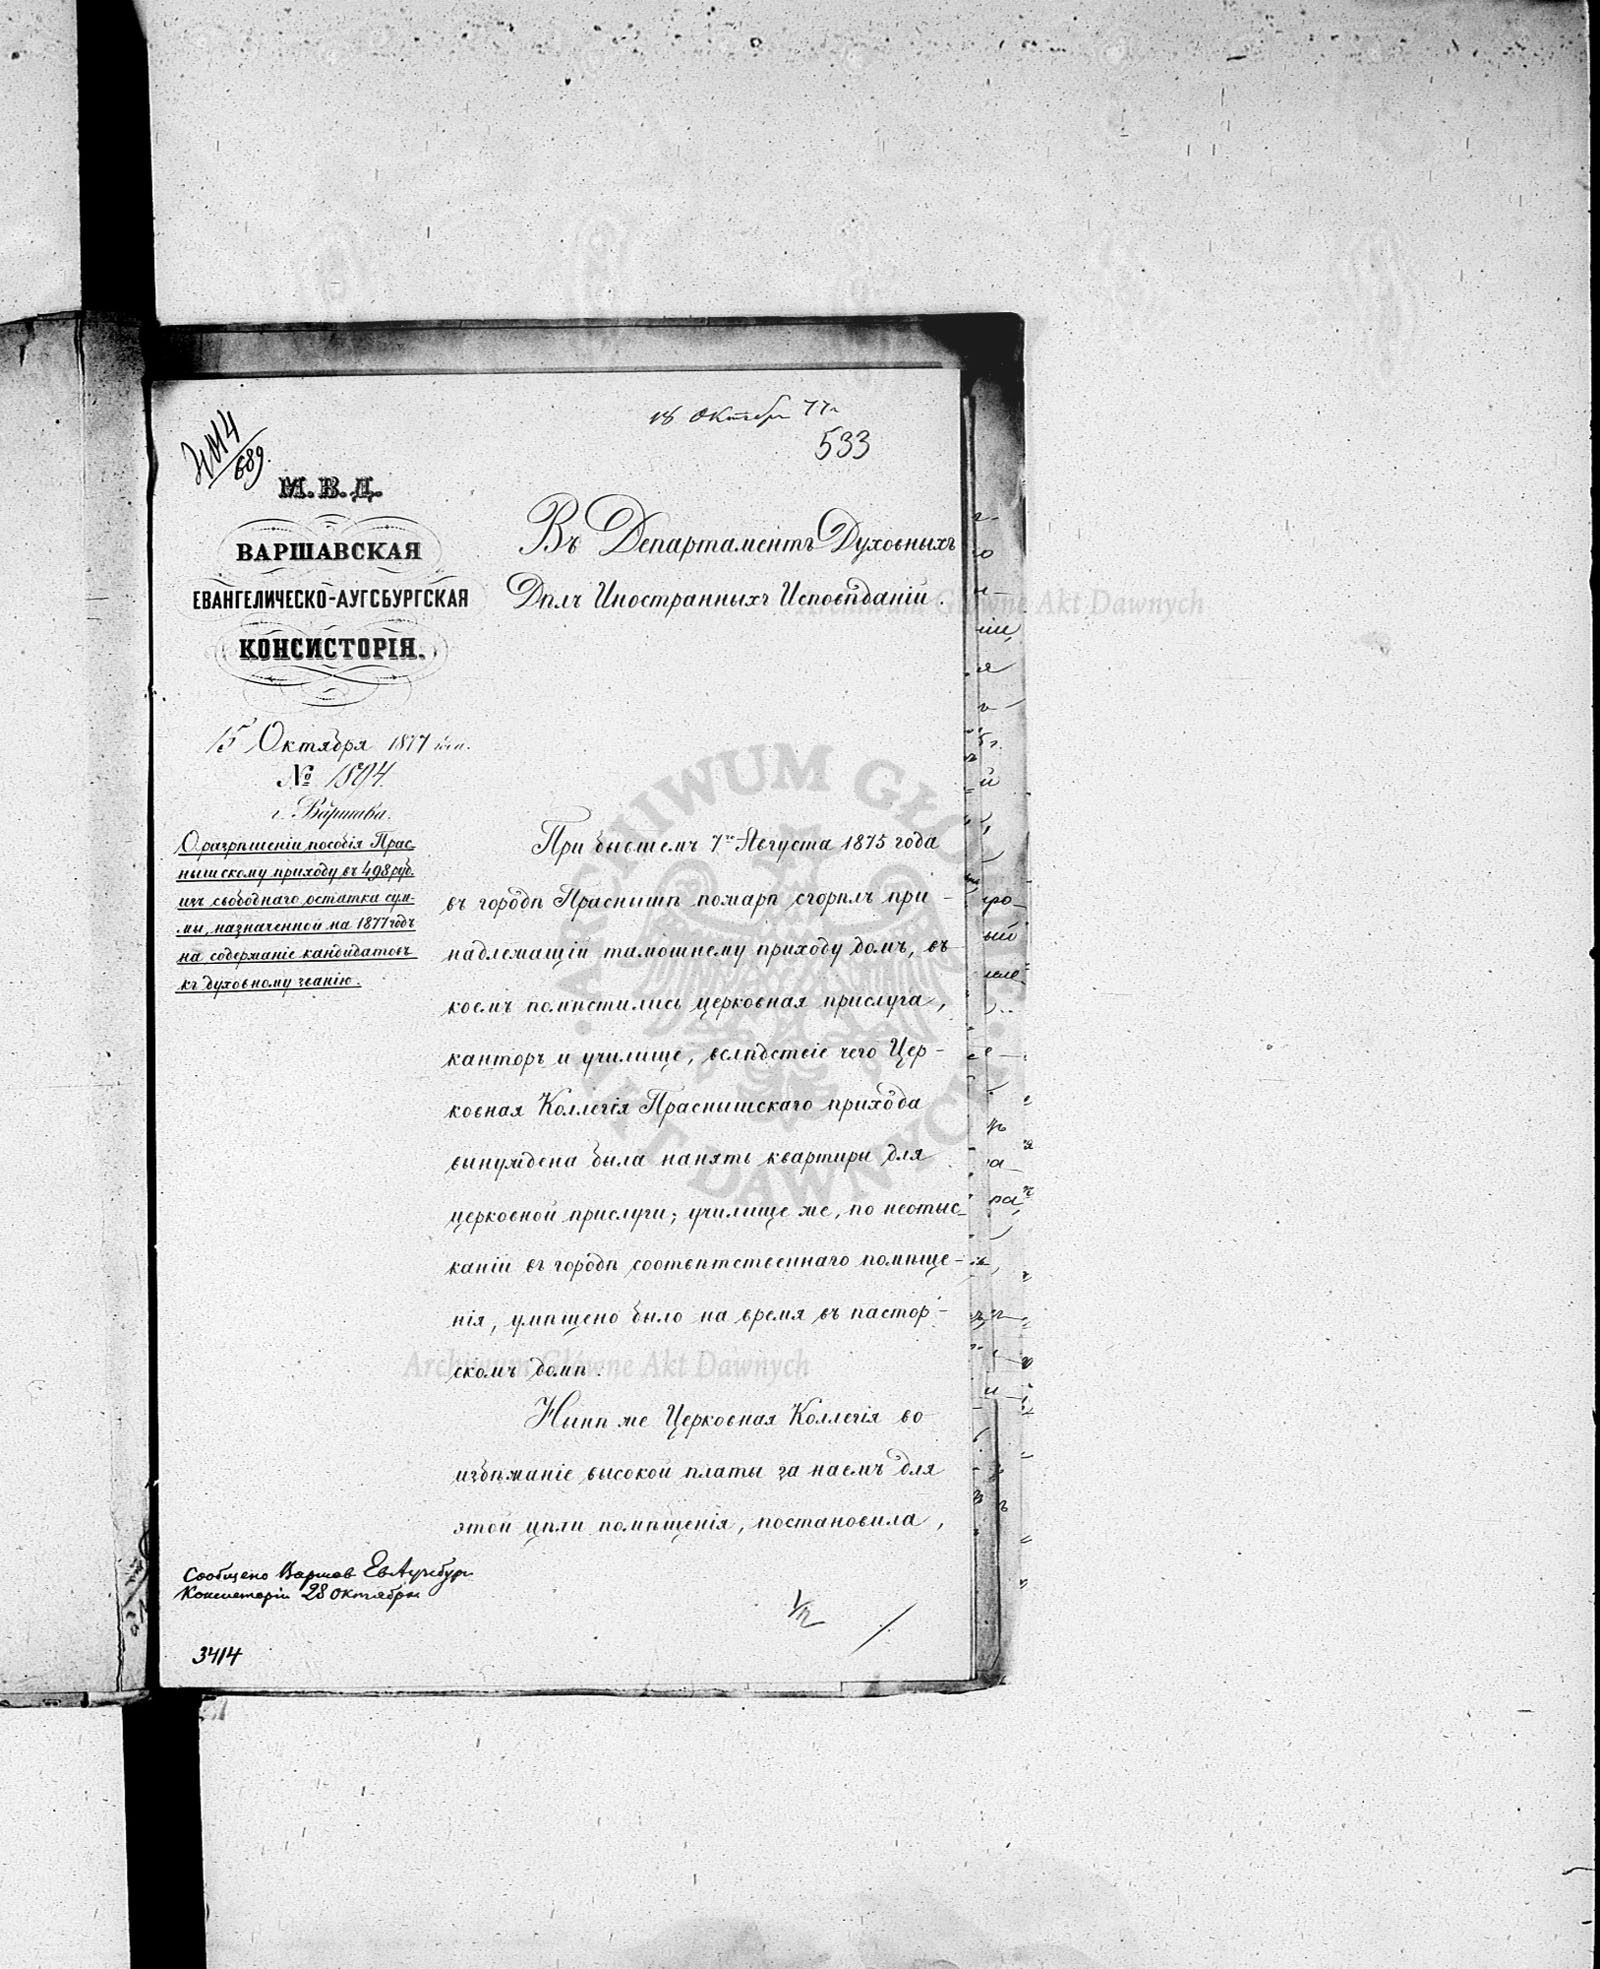 18 Октября 77 г.
533
689
М.В.Д.
ВАРШАВСКАЯ
ЕВАНГЕЛИЧЕСКО-АУГСБУРГСКАЯ
КОНСИСТОРІЯ.
15 Октября 1877
№ 1894.
г. Варшава.
О разрѣшеніи пособія Прас-
нышскому приходу въ 498 руб.
изъ свободнаго остатка сум-
мы, назначенной на 1877 годъ
на содержаніе кандидатовъ
къ духовному званію.
Въ Департаментъ Духовныхъ
Дѣлъ Иностранныхъ Исповѣданій.
При бывшемъ 7го Августа 1875 года
въ городѣ Праснышѣ пожарѣ сгорѣлъ при-
надлежащій тамошнему приходу домъ, въ
коемъ помѣстились церковная прислуга,
канторъ и училище, вслѣдствіе чего Цер-
ковная Коллегія Праснышскаго прихода
вынуждена была нанять квартиры для
церковной прислуги; училище же, по неотыс-
каніи въ городѣ соотвѣтственнаго помѣще-
нія, умѣщено было на время въ пастор-
скомъ домѣ.
Нынѣ же Церковная Коллегія во
избѣжаніе высокой платы за наемъ для
этой цѣли помѣщенія, постановила,
Сообщено Варшав Ев Аугсбург
Консисторіи 28 октября
3414
Archiwum Główne Akt Dawnych
ARCHIWUM GŁÓWNE AKT DAWNYCH
Archiwum Główne Akt Dawnych